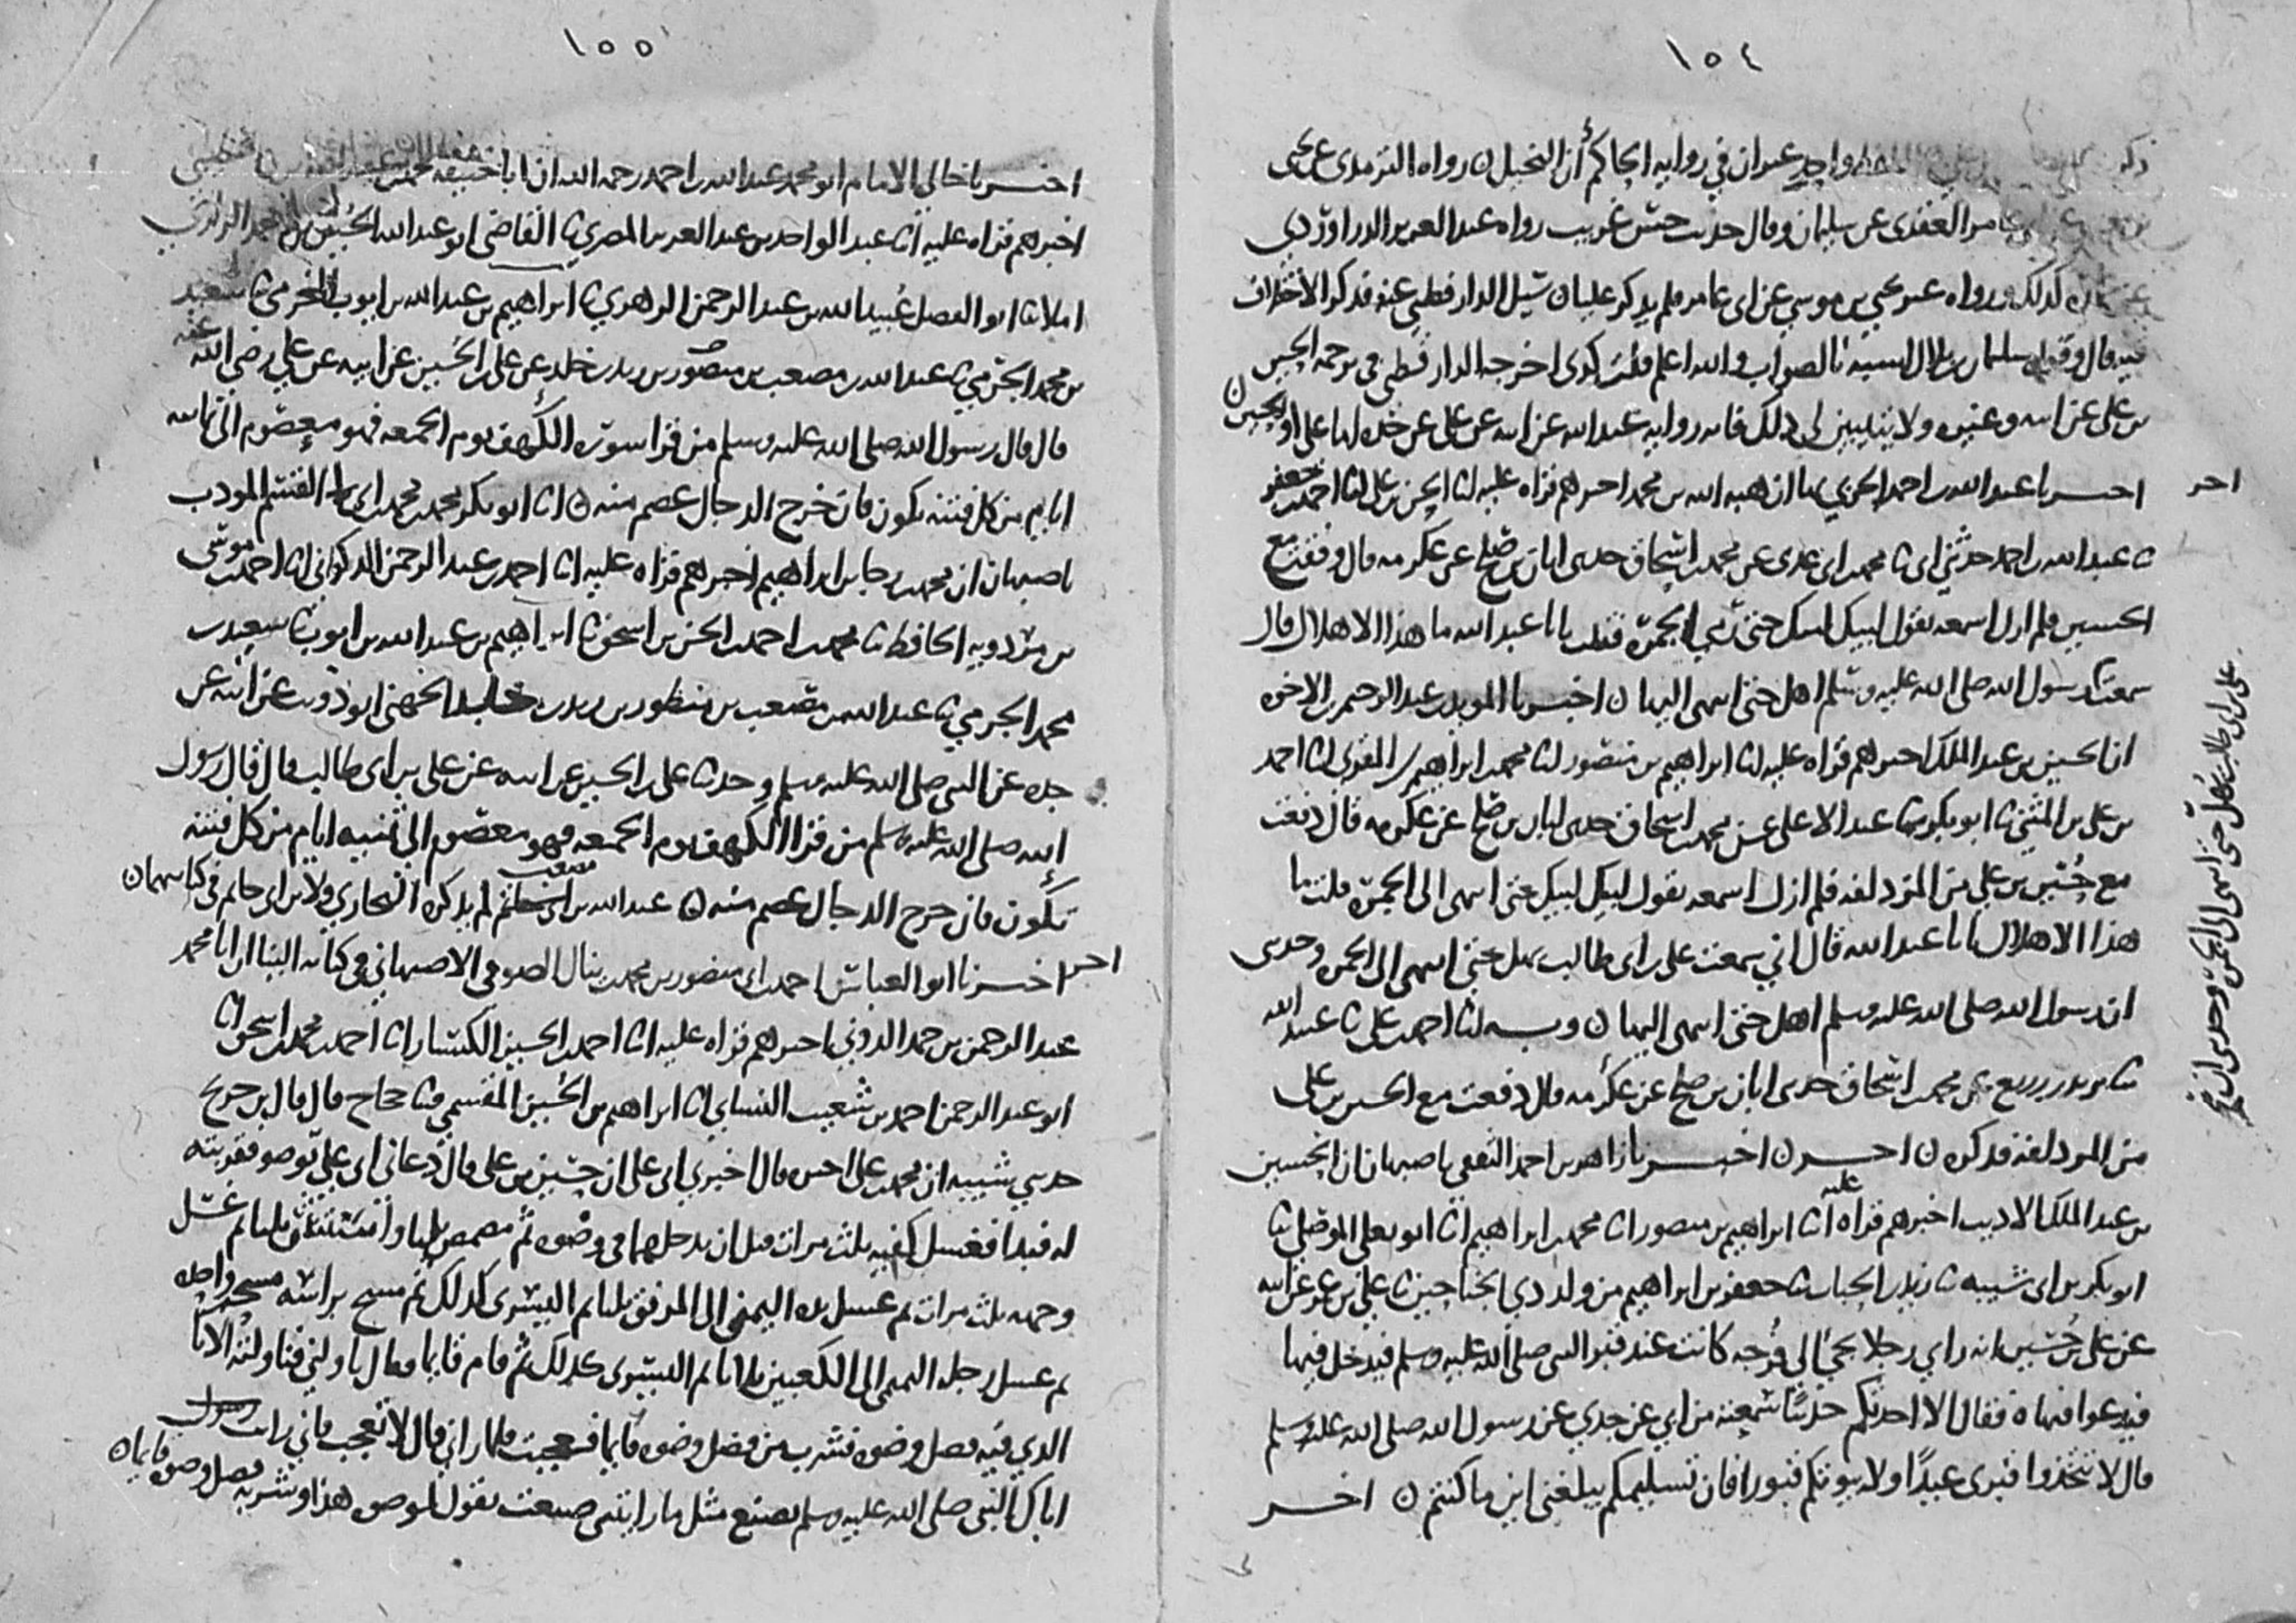 ١٥٤
واحد غير ان في رواية الحاكم أن البخيل ن رواه الترمذي عن يحيى
عامر العقدي عن سليمان وقال حديث حسن غريب رواه عبد العزيز الدراوردي
كذلك ورواه عن يحيى بن موسى عن ابي عامر فلم يذكر عليا ن سئل الدارقطني عنه فذكر الاختلاف
فيه قال وقول سليمان بن بلال اشبه بالصواب والله اعلم قلت كذى اخرجه الدارقطني في ترجمة الحسين
بن علي عن ابيه وغيره ولا يتبين لي ذلك فانه رواية عبد الله عن ابيه عن علي عن جده اما علي او الحسين ن
احر
اخبرنا عبد الله بن احمد الحربي بها ان هبة الله بن محمد اخبرهم قراه عليه انا الحسن بن علي انا احمد بن جعفر
نا عبد الله بن احمد حدثني ابي نا محمد بن ابي عدي عن محمد بن اسحاق حدثني ابان بن صالح عن عكرمه قال وقفت مع
الحسين فلم ازل اسمعه يقول لبيك لبيك حتى رمى الجمرة فقلت يا ابا عبد الله ما هذا الاهلال قال
سمعت رسول الله صلى الله عليه وسلم اهل حتى انتهى اليها ن اخبرنا المويد بن عبد الرحيم بن الاخوه
ان الحسين بن عبد الملك اخبرهم قراه عليه انا ابراهيم بن منصور انا محمد بن ابراهيم بن المقري انا احمد
بن علي بن المثنى نا ابو بكر نا عبد الاعلى عن محمد بن اسحاق حدثني ابان بن صالح عن عكرمه قال دفعت
مع حسين بن علي من المزدلفه فلم ازل اسمعه يقول لبيك لبيك حتى انتهى الى الجمرة قلت ما
هذا الاهلال يا ابا عبد الله قال اني سمعت علي بن ابي طالب يهل حتى انتهى الى الجمرة وحدثني
ان رسول الله صلى الله عليه وسلم اهل حتى انتهى اليها ن وبه انا احمد بن علي نا عبيد الله
نا يزيد بن زريع عن محمد بن اسحاق حدثني ابان بن صالح عن عكرمه قال دفعت مع الحسين بن علي
من المزدلفه فذكره ن اخر ن اخبرنا زاهر بن احمد الثقفي باصبهان ان الحسين
بن عبد الملك الاديب اخبرهم قراه عليه انا ابراهيم بن منصور انا محمد بن ابراهيم انا ابو يعلى الموصلي نا
ابو بكر بن ابي شيبه نا زيد بن الحباب نا جعفر بن ابراهيم من ولد ذي الجناحين نا علي بن عمر عن ابيه
عن علي بن حسين انه راي رجلا يجي الى فرجه كانت عند قبر النبي صلى الله عليه وسلم فيدخل فيها
فيدعوا فنهاه فقال الا احدثكم حديثا سمعته من ابي عن جدي عن رسول الله صلى الله عليه وسلم
قال لا تتخذوا قبري عيدًا ولا بيوتكم قبورا فان تسليمكم يبلغني اين ما كنتم ن اخر
علي بن ابي طالب يهل حتى انتهى الى الجمرة وحدثني ان
١٥٥
اخبرنا خالي الامام ابو محمد عبد الله بن احمد رحمه الله ان ابا حنيفه محمد بن
اخبرهم قراه عليه انا عبد الواحد بن عبد العزيز المصري نا القاضي ابو عبد الله الحسين بن
املا نا ابو الفضل عبيد الله بن عبد الرحمن الزهري نا ابراهيم بن عبد الله بن ايوب المخرمي نا سعيد
بن محمد الجرمي نا عبد الله بن مصعب بن منصور بن زيد بن خلد عن علي بن الحسين عن ابيه عن علي رضي الله عنه
قال قال رسول الله صلى الله عليه وسلم من قرا سورة الكهف يوم الجمعه فهو معصوم الى ثمانيه
ايام من كل فتنه تكون فان خرج الدجال عصم منه ن انا ابو بكر محمد بن محمد بن ابي القسم المودب
باصبهان ان محمد بن رجا بن ابراهيم اخبرهم قراه عليه انا احمد بن عبد الرحمن الذكواني انا احمد بن موسى
بن مردويه الحافظ نا محمد بن احمد بن الحسن بن اسحق نا ابراهيم بن عبد الله بن ايوب نا سعيد بن
محمد الجرمي نا عبد الله بن مصعب بن منظور بن زيد بن خالد الجهني ابو ذويب عن ابيه عن
جده عن النبي صلى الله عليه وسلم وحدثنا علي بن الحسين عن ابيه عن علي بن ابي طالب قال قال رسول
الله صلى الله عليه وسلم من قرا الكهف يوم الجمعه فهو معصوم الى ثمنيه ايام من كل فتنه
تكون فان خرج الدجال عصم منه ن عبد الله بن مصعب لم يذكره البخاري ولا ابن ابي حاتم في كتابيهما ن
احر
اخبرنا ابو العباس احمد بن ابي منصور بن محمد بن ينال الصوفي الاصبهاني في كتابه الينا ان ابا محمد
عبد الرحمن بن حمد الدوني اخبرهم قراه عليه انا احمد بن الحسين الكسار انا احمد بن محمد بن اسحق انا
ابو عبد الرحمن احمد بن شعيب النسائي انا ابراهيم بن الحسين المقسمي نا حجاج قال قال ابن جريج
حدثني شيبه ان محمد بن علي اخبره قال اخبرني ابي علي ان حسين بن علي قال دعاني ابي علي بوضو فقربته
له فبدا فغسل كفيه ثلث مرات قبل ان يدخلهما في وضوه ثم مضمض ثلثا واستنثر ثلثا ثم غسل
وجهه ثلث مرات ثم غسل يده اليمنى الى المرفق ثلثا ثم اليسرى كذلك ثم مسح براسه مسحه واحده
ثم غسل رجله اليمنى الى الكعبين ثلاثا ثم اليسرى كذلك ثم قام قايما فقال ناولني فناولته الانا
الذي فيه فضل وضوه فشرب من فضل وضوه قايما فعجبت فلما راني قال لا تعجب فاني رايت
اباك النبي صلى الله عليه وسلم يصنع مثل ما رايتني صنعت يقول لوضوه هذا وشربه فضل وضوه قايما ن